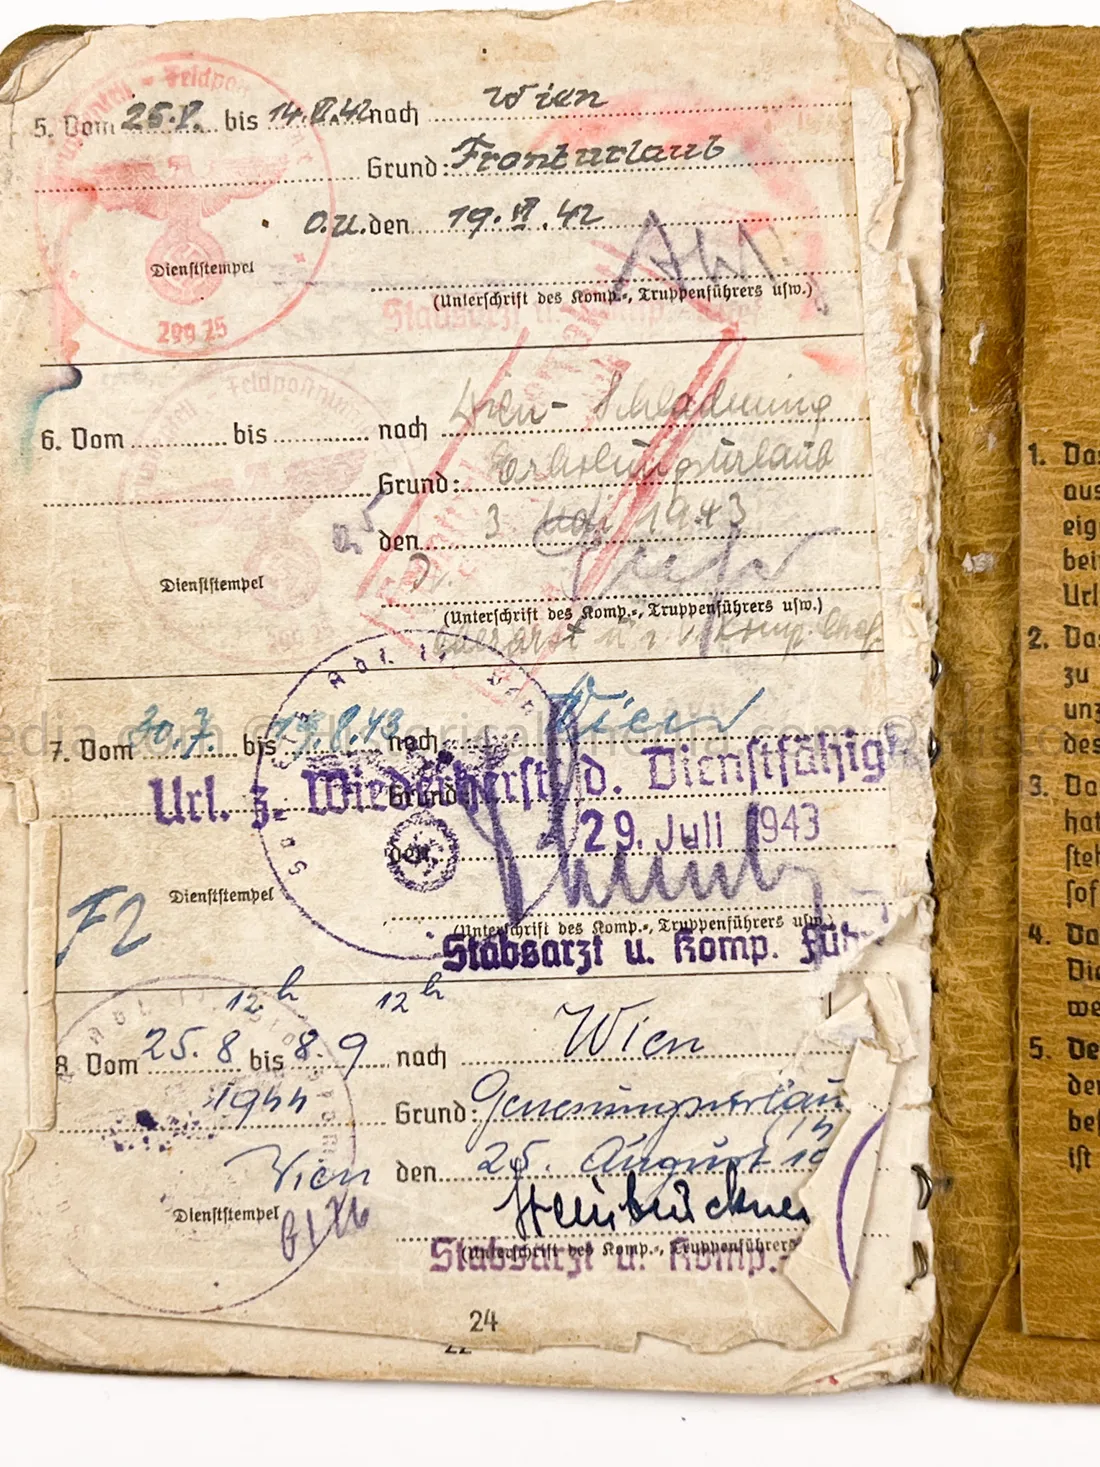 5. Vom 25.V. bis 14.VI.42 nach Wien
Grund: Fronturlaub
O.U. den 19.VI.42
Dienststempel
(Unterschrift des Komp.-, Truppenführers usw.)
29925
Stabsarzt u. Komp.
6. Vom bis nach Wien - Schladming
Feldpostnum
Grund: Erholungsurlaub
den 3 Mai 1943
Dienststempel
(Unterschrift des Komp.-, Truppenführers usw.)
Oberarzt u. Komp. Chef
7. Vom 30.7. bis 19.8.43 nach Wien
Url. z. Wiederherst. d. Dienstfähigk
Grund:
29. Juli 1943
den
Dienststempel
F2
(Unterschrift des Komp.-, Truppenführers usw.)
Stabsarzt u. Komp. Führ
12h 12h
8. Vom 25.8 bis 8.9 nach Wien
1944
Grund: Genesungsurlau
Wien den 25. August 19
Dienststempel
(Unterschrift des Komp.-, Truppenführers
Stabsarzt u. Komp.-
24
22
1. Das
aus
eig
bei
Url
2. Das
zu
unz
des
3. Da
hat
steh
sof
4. Da
Die
we
5. De
der
bef
ist